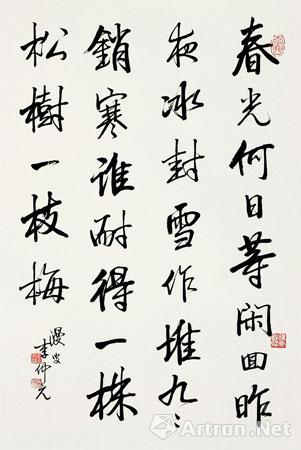 春光何日等闲回昨
夜冰封雪作堆九〻
銷寒谁耐得一株
松樹一枝梅
漫叟
李仲元
Artron.Net